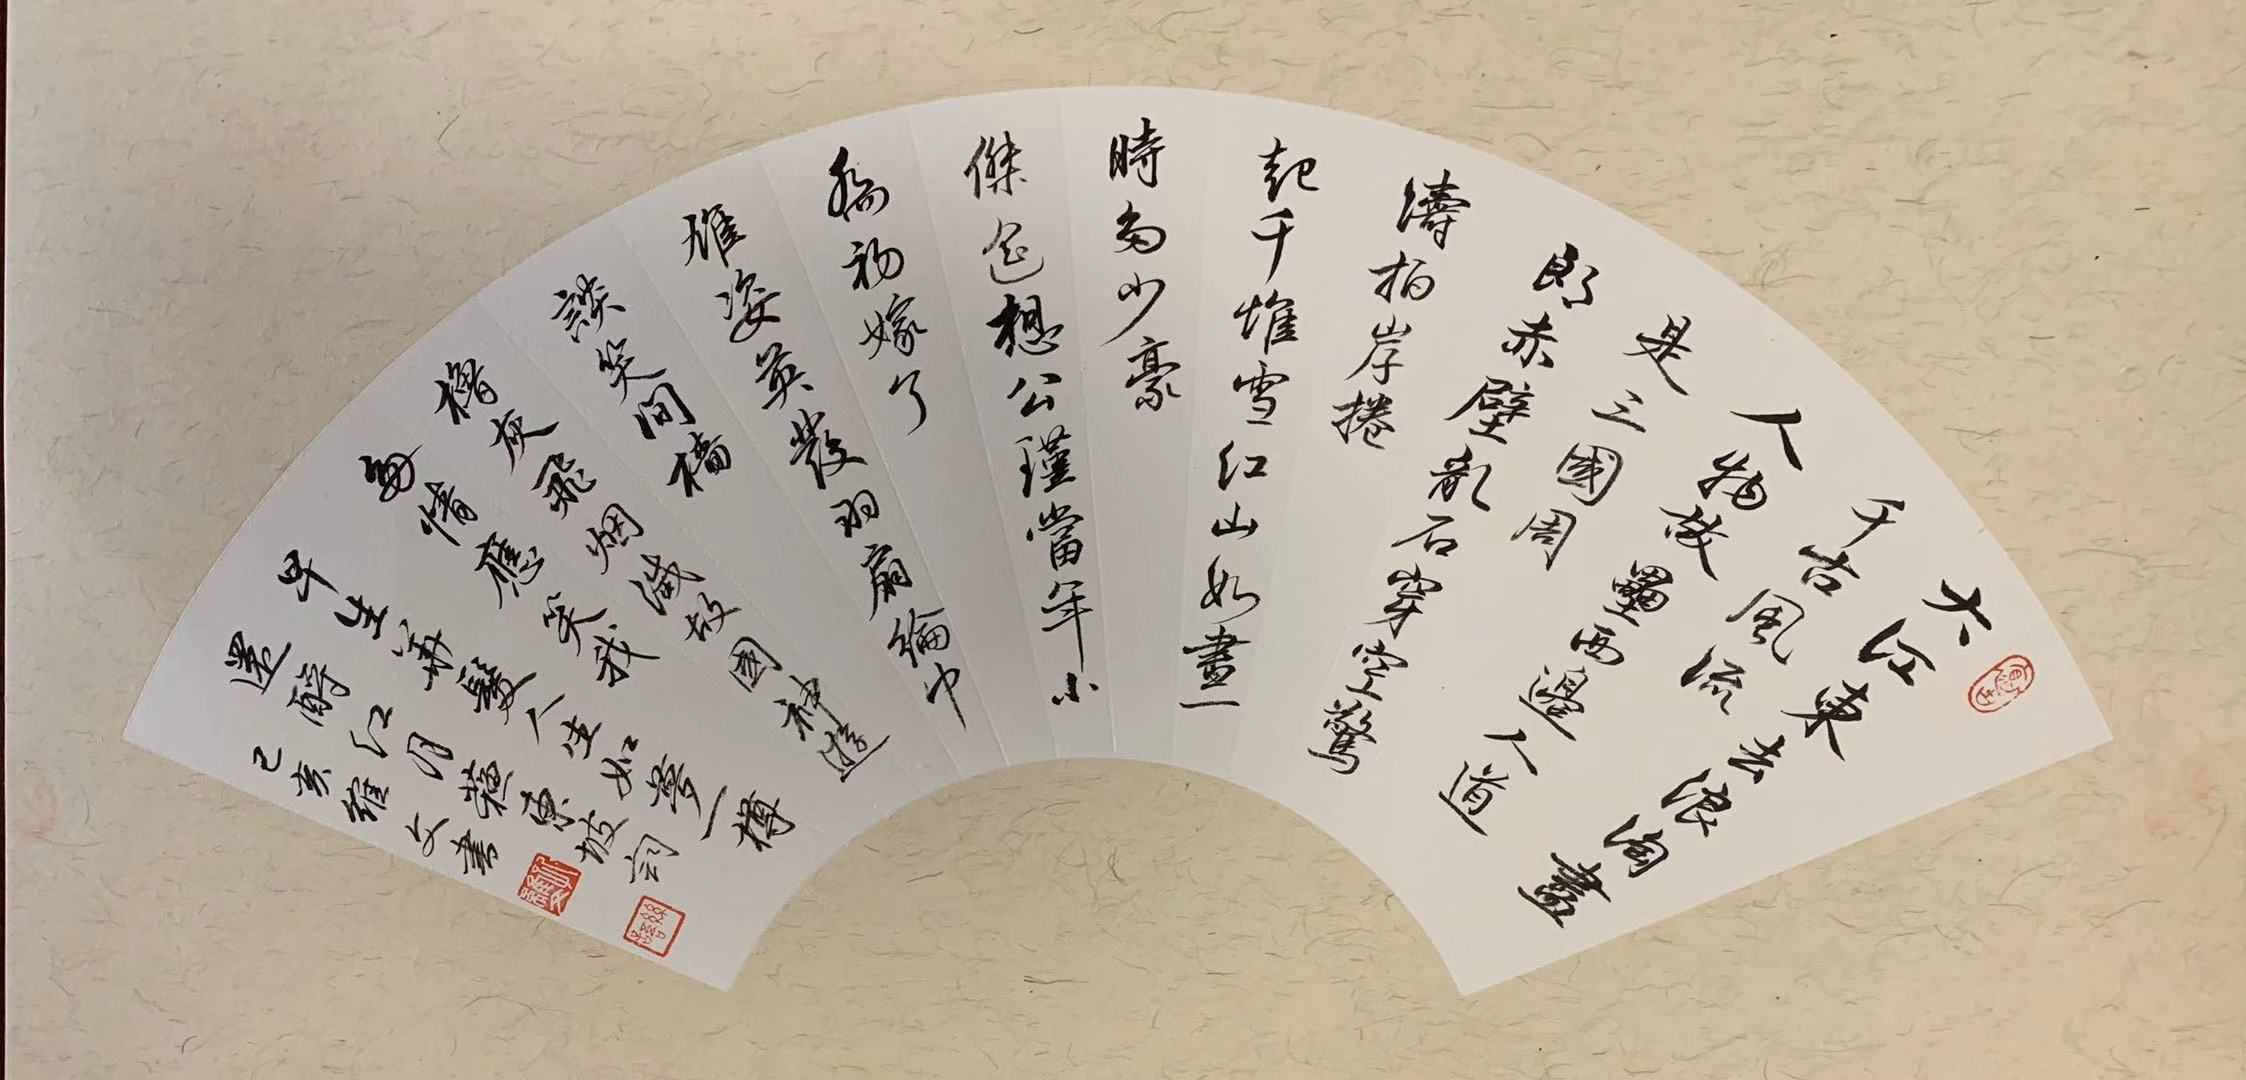 大江東去浪淘盡
千古風流
人物故壘西邊人道
是三國周
郎赤壁亂石穿空驚
濤拍岸捲
起千堆雪江山如畫一
時多少豪
傑遙想公瑾當年小
喬初嫁了
雄姿英發羽扇綸巾
談笑間檣
櫓灰飛烟滅故國神遊
多情應笑我
早生華髮人生如夢一樽
還酹江月蘇東坡詞
己亥維文書